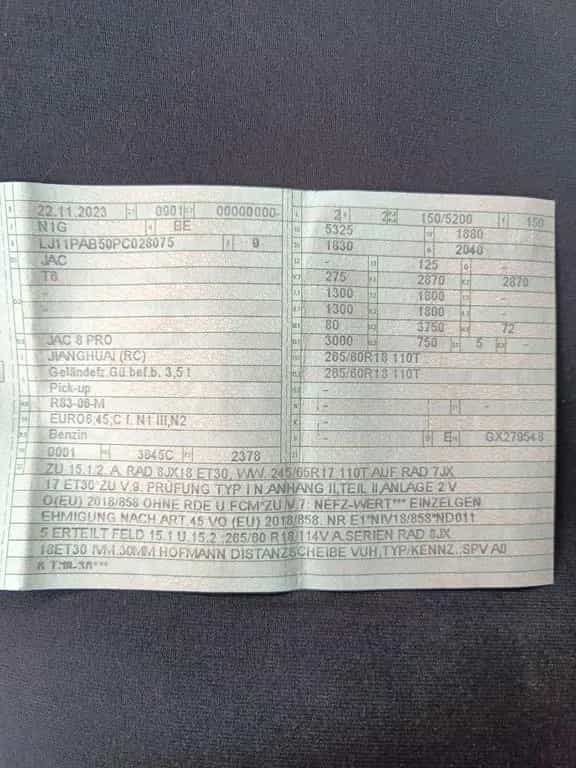 22.11.2023 0001 00000000-
N1G BE
LJ11PAB50PC028075 0
JAC
T8
-
-
JAC 8 PRO
JIANGHUAI (RC)
Geländefz.Gü.bef.b. 3,5 t
Pick-up
R83-06-M
EURO6,45,C f. N1 III,N2
Benzin
0001 3845C 2378
2 2 150/5200 150
5325 1880
1830 2040
- 125 -
275 2870 2870
1300 1800 -
1300 1800 -
80 3750 72
3000 750 5 -
265/60R18 110T
265/60R18 110T
-
-
- -
- E GX279548
ZU 15.1/2. A. RAD 8JX18 ET30, WW. 245/65R17 110T AUF RAD 7JX
17 ET30*ZU V.9. PRÜFUNG TYP I N.ANHANG II,TEIL II,ANLAGE 2 V
O(EU) 2018/858 OHNE RDE U FCM*ZU V.7: NEFZ-WERT*** EINZELGEN
EHMIGUNG NACH ART.45 VO (EU) 2018/858. NR E1*NIV18/858*ND011
5 ERTEILT FELD 15.1 U 15.2 :265/60 R18/114V A.SERIEN RAD 8JX
18ET30 IVM.30MM HOFMANN DISTANZSCHEIBE VUH,TYP/KENNZ. SPV A0